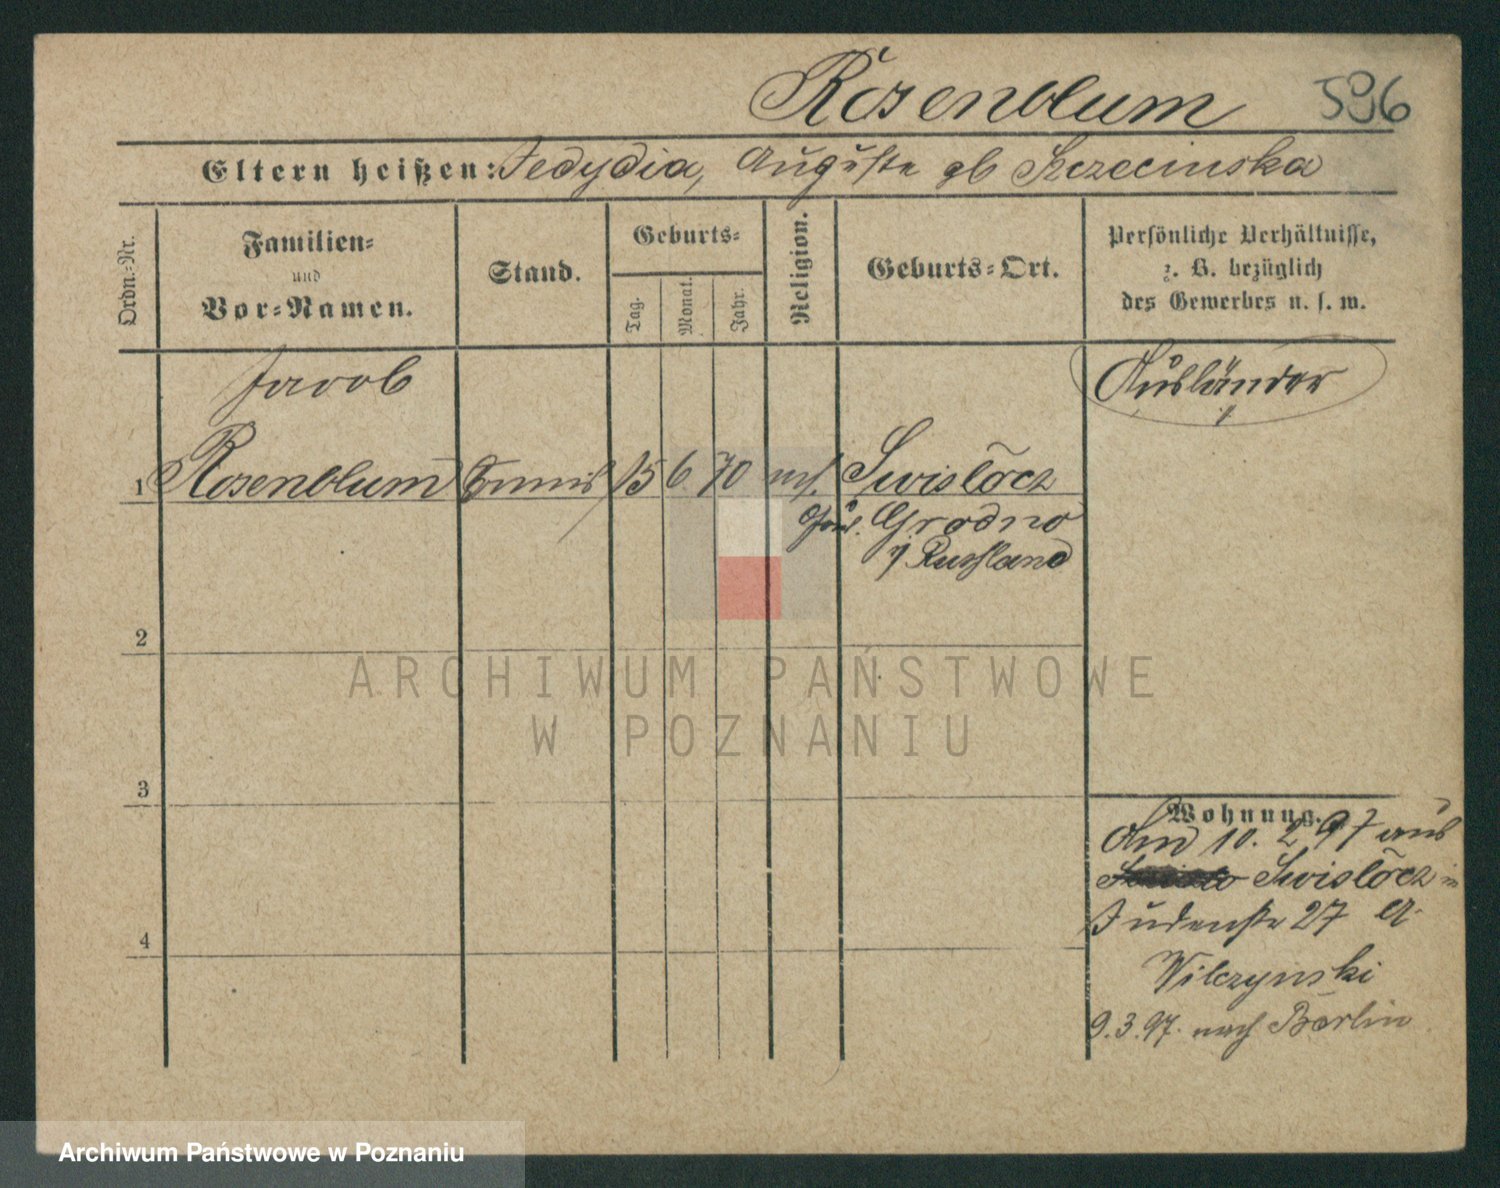 Rosenblum 596
Eltern heißen: Jedydia, Auguste gb Szczecinska
Ordn.-Nr.
Familien-
und
Vor-Namen.
Stand.
Geburts-
Tag.
Monat.
Jahr.
Religion.
Geburts-Ort.
Persönliche Verhältnisse,
z. B. bezüglich
des Gewerbes u. s. w.
Jacob
Ausländer
1 Rosenblum 15 6 70 mos. Swislocz
Gouv. Grodno
Russland
2
3
4
Wohnung.
Am 10. 2 97 aus
Swislocz in
Judenstr 27 a.
Wilczynski
9.3.97. nach Berlin
ARCHIWUM PAŃSTWOWE
W POZNANIU
Archiwum Państwowe w Poznaniu